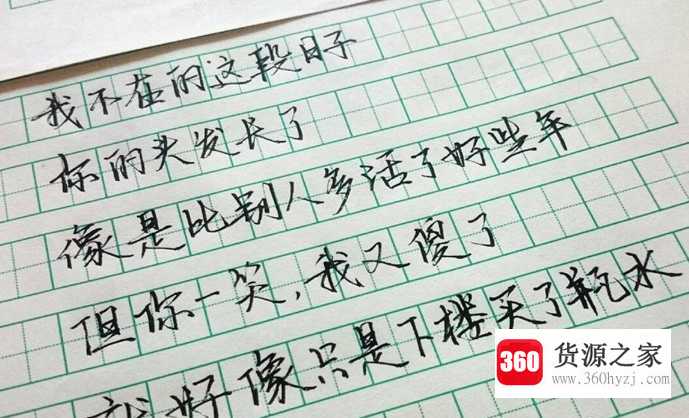 我不在的这段日子
你的头发长了
像是比别人多活了好些年
但你一笑,我又傻了
我好像只是下楼买了瓶水
360 货源之家
www.360hyzj.com